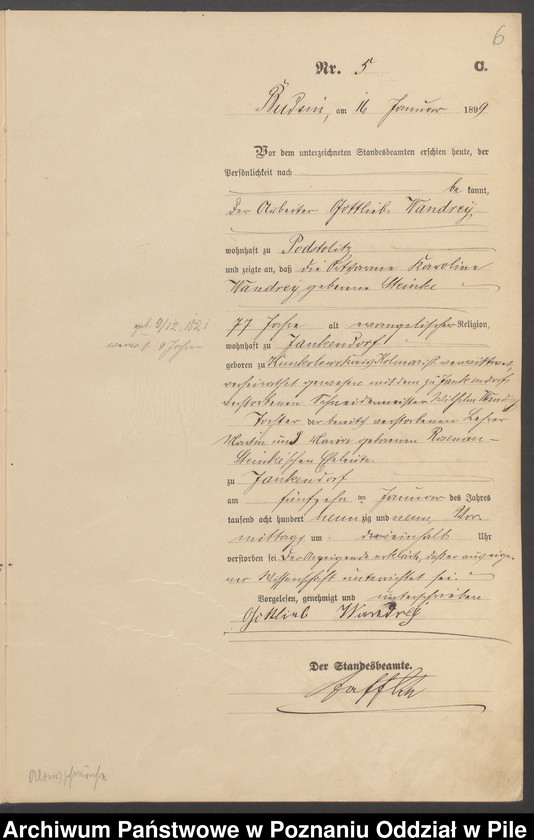 6
Nr. 5 C.
Budsin, am 16 Januar 1899
Vor dem unterzeichneten Standesbeamten erschien heute, der
Persönlichkeit nach
be kannt,
der Arbeiter Gottlieb Wandrey
wohnhaft zu Podstolitz
und zeigte an, daß die Ortsarme Karoline
Wandrey geborene Steinke
77 Jahre alt evangelischer Religion,
geb. 9/12. 1821
verw. s. 8 Jahren
wohnhaft zu Jankendorf
geboren zu Kreis Kolmar i/P. verwittwet,
verheirathet gewesen mit dem zu Jankendorf
verstorbenen Schneidermeister Wilhelm Wandrey
Tochter der bereits verstorbenen Lehrer
Martin und Maria geborenen
Steinke'schen Eheleute.
zu Jankendorf
am fünfzehn ten Januar des Jahres
tausend acht hundert neun zig und neun Vor-
mittags um dreieinhalb Uhr
verstorben sei. Der Anzeigende erklärte, daß er aus eige-
ner Wissenschaft unterrichtet sei.
Vorgelesen, genehmigt und unterschrieben
Gottlieb Wandrey
Der Standesbeamte.
Altersschwäche
Archiwum Państwowe w Poznaniu Oddział w Pile